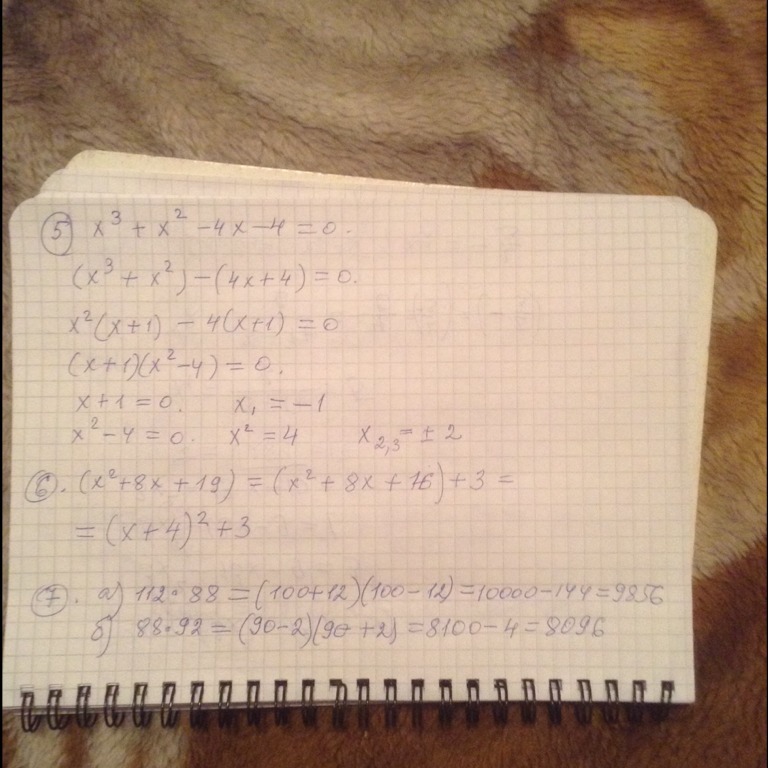 ⑤ x³ + x² - 4x - 4 = 0.
(x³ + x²) - (4x + 4) = 0.
x²(x+1) - 4(x+1) = 0
(x+1)(x²-4) = 0.
x+1 = 0. x₁ = -1
x²-4 = 0. x² = 4 x₂,₃ = ± 2
⑥. (x²+8x+19) = (x²+8x+16)+3 =
= (x+4)²+3
⑦. а) 112·88 = (100+12)(100-12) = 10000-144 = 9856
б) 88·92 = (90-2)(90+2) = 8100-4 = 8096